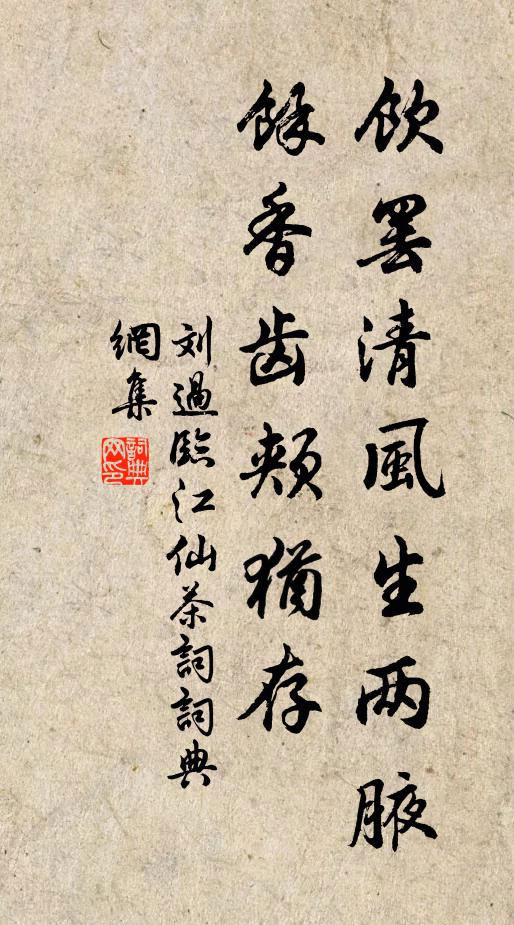 飲罢清風生两腋
餘香齿頰猶存
刘過臨江仙茶詞詞典
網集
詞典网印